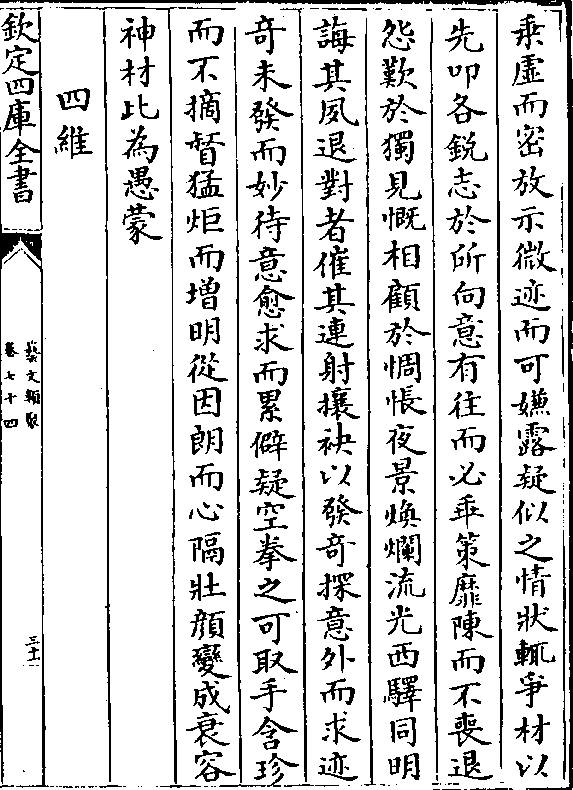 乗虛而密放示微迹而可嫌露疑似之情狀輒爭材以
先叩各銳志於所向意有往而必乖策靡陳而不喪退
怨歎於獨見慨相顧於惆悵夜景煥爛流光西驛同明
誨其夙退對者催其連射攘袂以發奇探意外而求迹
奇未發而妙待意愈求而累僻疑空拳之可取手含珍
而不摘督猛炬而增明從因朗而心隔壯顔變成衰容
神材比為愚蒙
四維
欽定四庫全書
藝文類聚
卷七十四
三十二